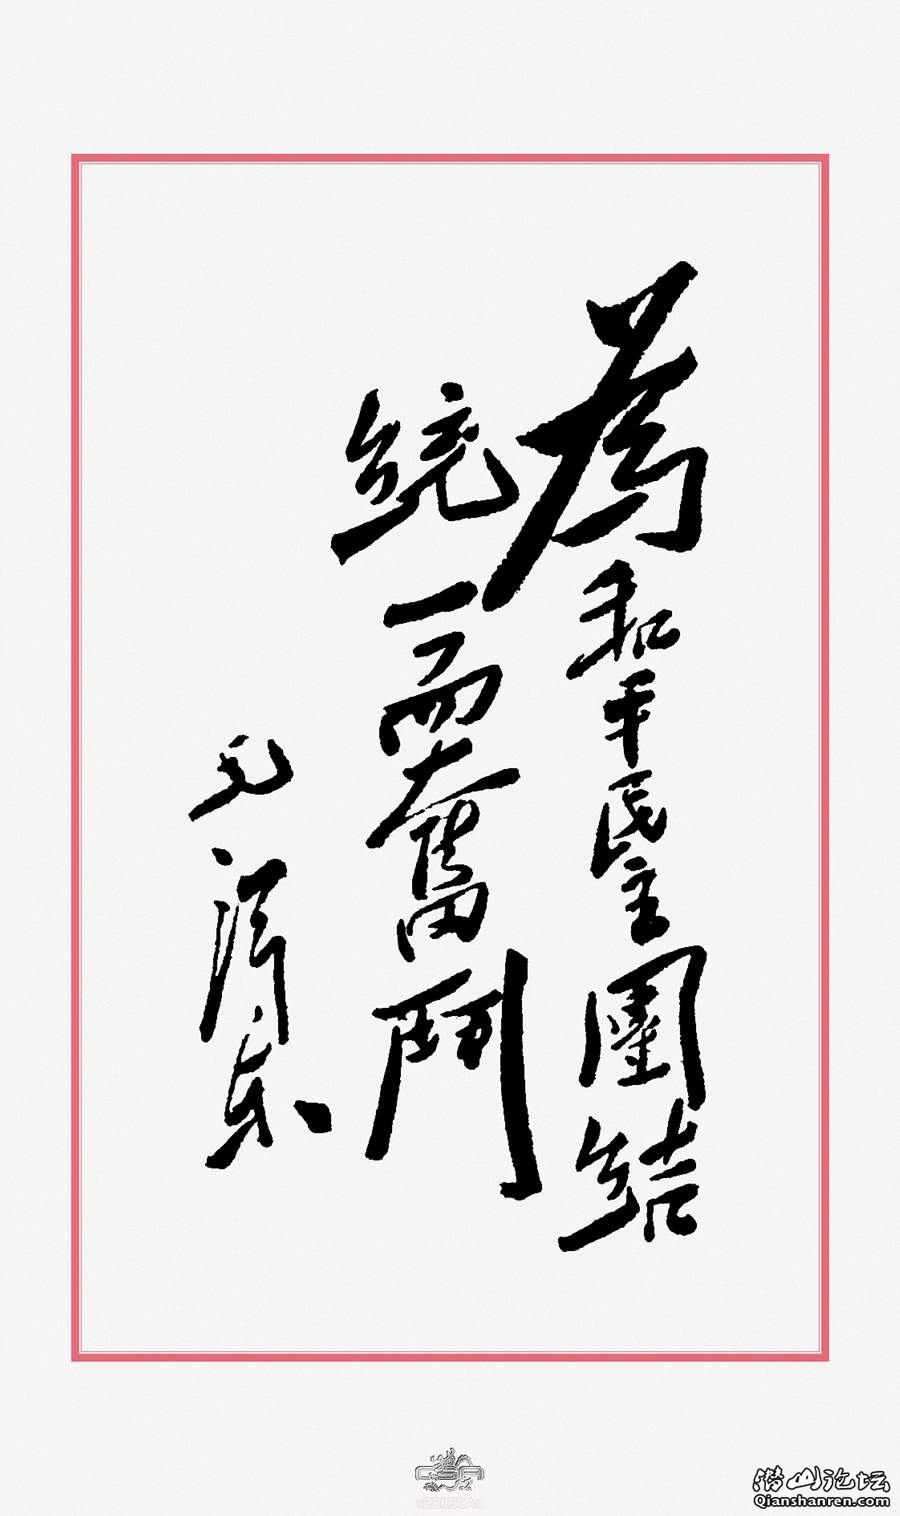 為和平民主團結
統一而奮鬥
毛澤東
CSA
潜山论坛
Qianshanren.com